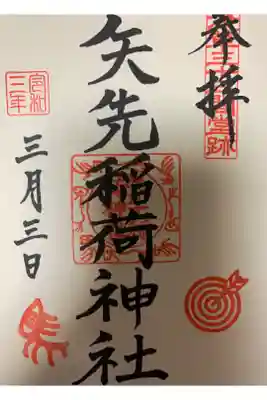 奉拝
矢先稲荷神社
令和
三年
三月三日
馬